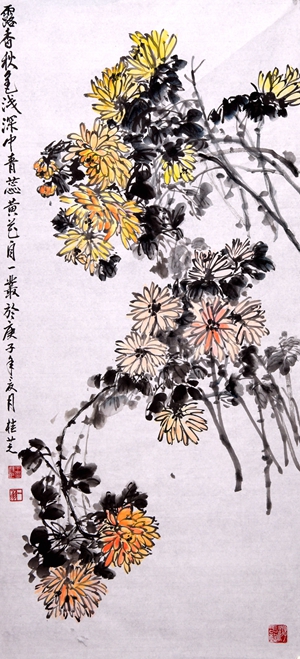 露香秋色浅深中青蕊黄花自一丛於庚子年夏月桂芝